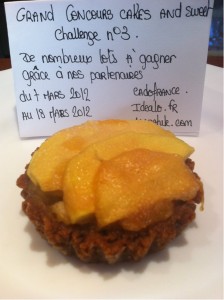 GRAND CONCOURS CAKES AND SWEET
Challenge n°3.
De nombreux lots à gagner
grâce à nos partenaires
du 7 MARS 2012
AU 18 MARS 2012
CADOFRANCE.
Idealo.fr
.com